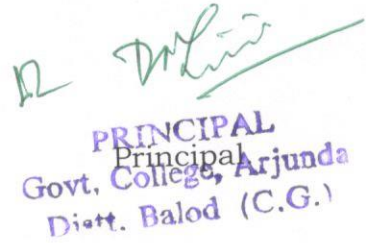 PRINCIPAL
Principal
Govt. College, Arjunda
Distt. Balod (C.G.)